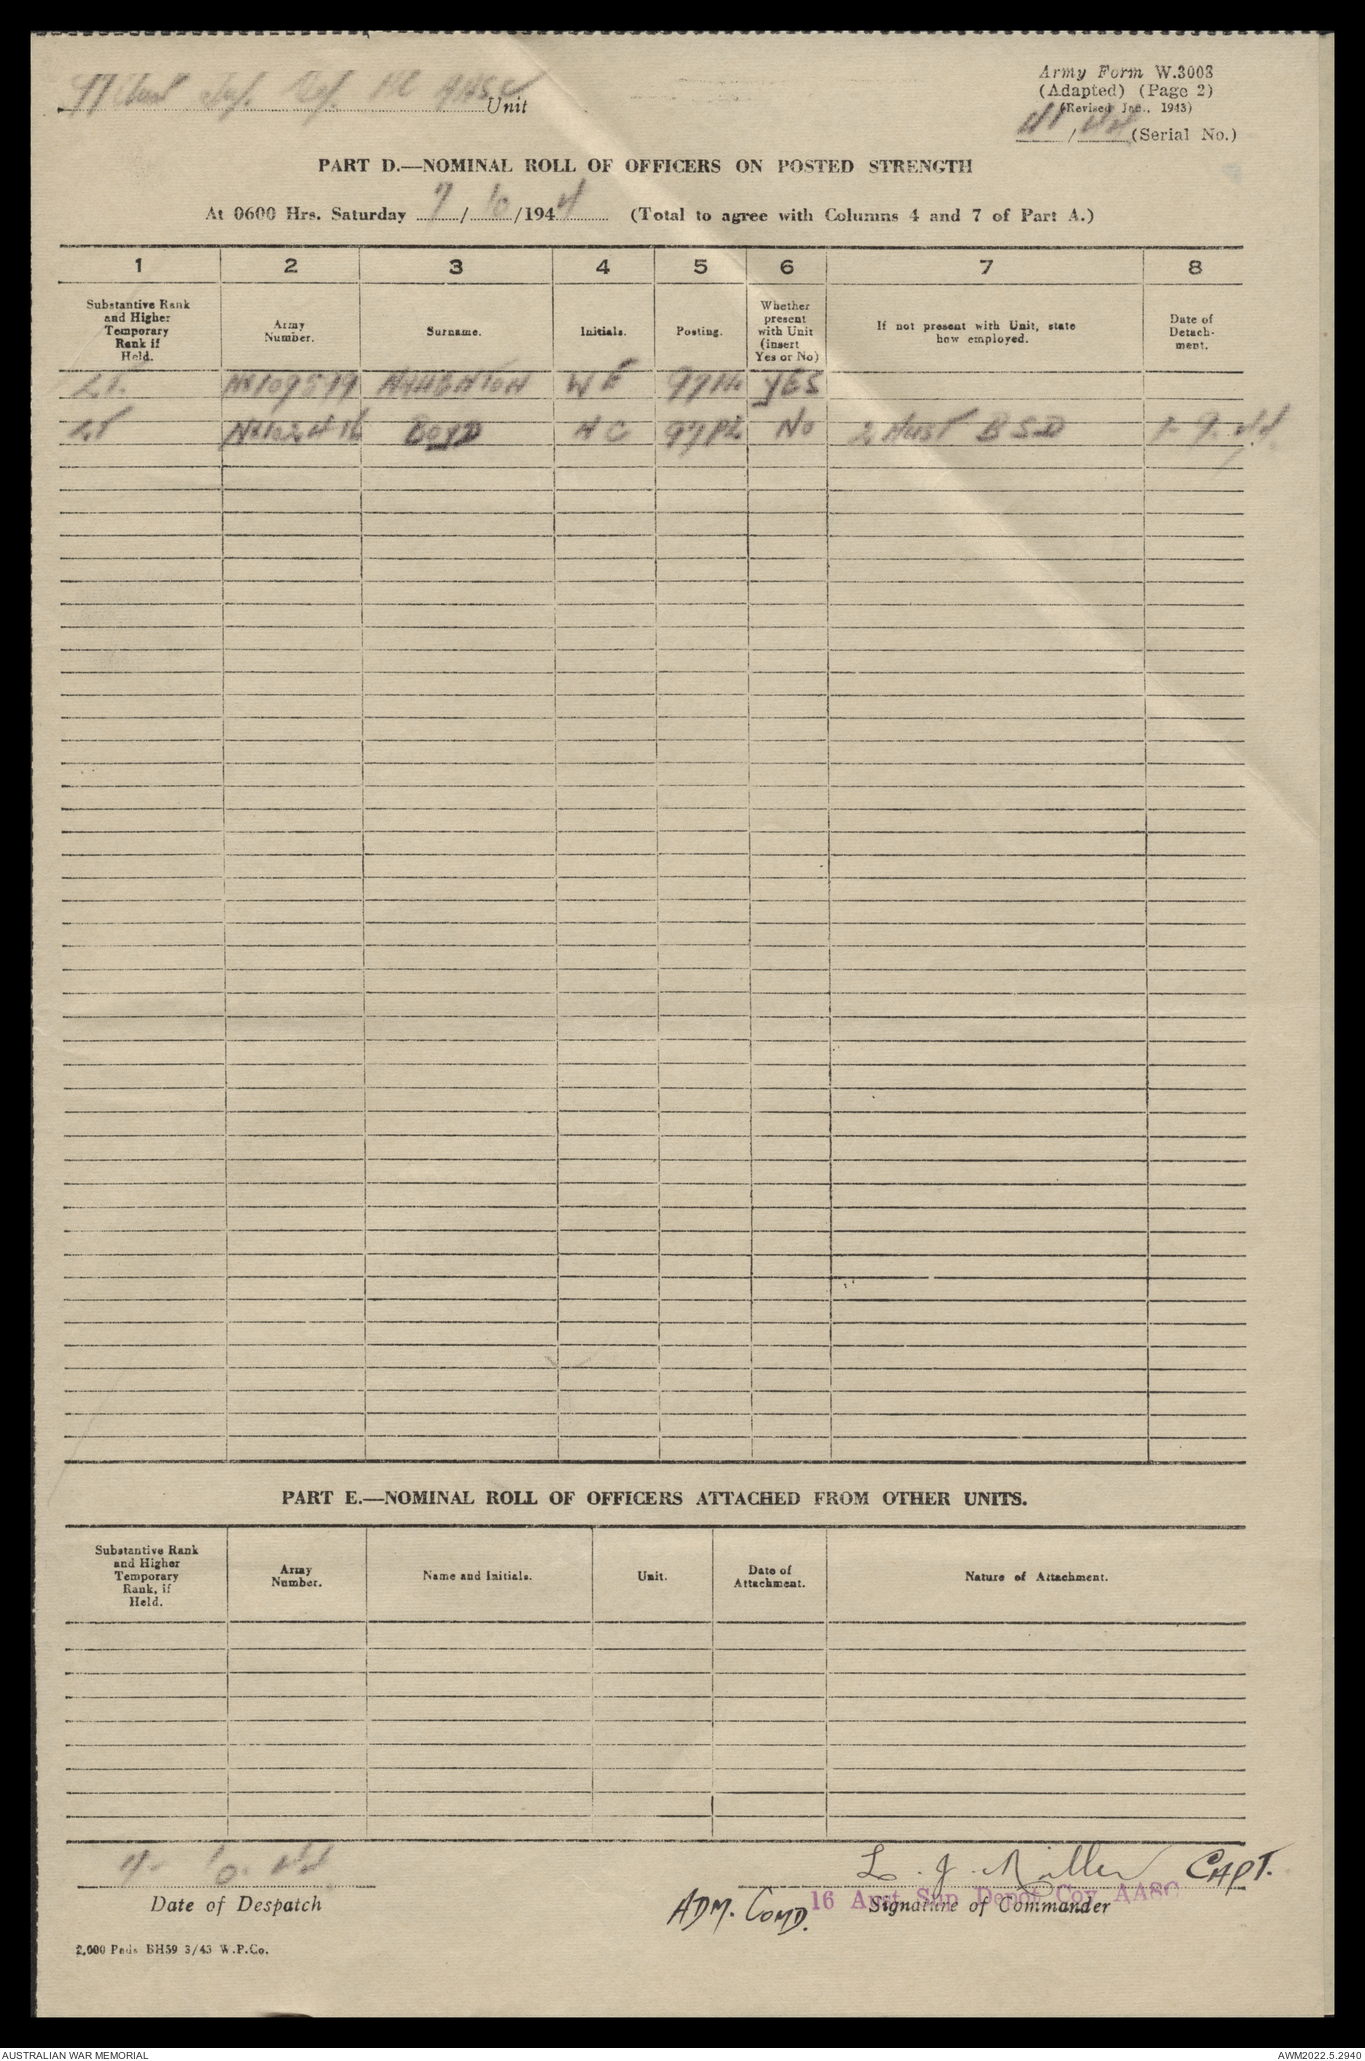 97 Aust Sup. Dep. Pl AASC Unit
Army Form W.3008
(Adapted) (Page 2)
(Revised Jan., 1943)
41/44 (Serial No.)
PART D.—NOMINAL ROLL OF OFFICERS ON POSTED STRENGTH
At 0600 Hrs. Saturday 7/10/1944 (Total to agree with Columns 4 and 7 of Part A.)
1 2 3 4 5 6 7 8
Substantive Rank and Higher Temporary Rank if Held.
Army Number.
Surname.
Initials.
Posting.
Whether present with Unit (insert Yes or No)
If not present with Unit, state how employed.
Date of Detachment.
LT. W E 97 PL YES
LT BOYD 97 PL NO 2 AUST BSD 1-9-44
PART E.—NOMINAL ROLL OF OFFICERS ATTACHED FROM OTHER UNITS.
Substantive Rank and Higher Temporary Rank, if Held.
Army Number.
Name and Initials.
Unit.
Date of Attachment.
Nature of Attachment.
10. 44
Date of Despatch
L. J. Miller CAPT.
ADM. COMD. 16 Aust Sup Depot Coy AASC
Signature of Commander
2,000 Pads BH59 3/43 W.P.Co.
AUSTRALIAN WAR MEMORIAL
AWM2022.5.2940